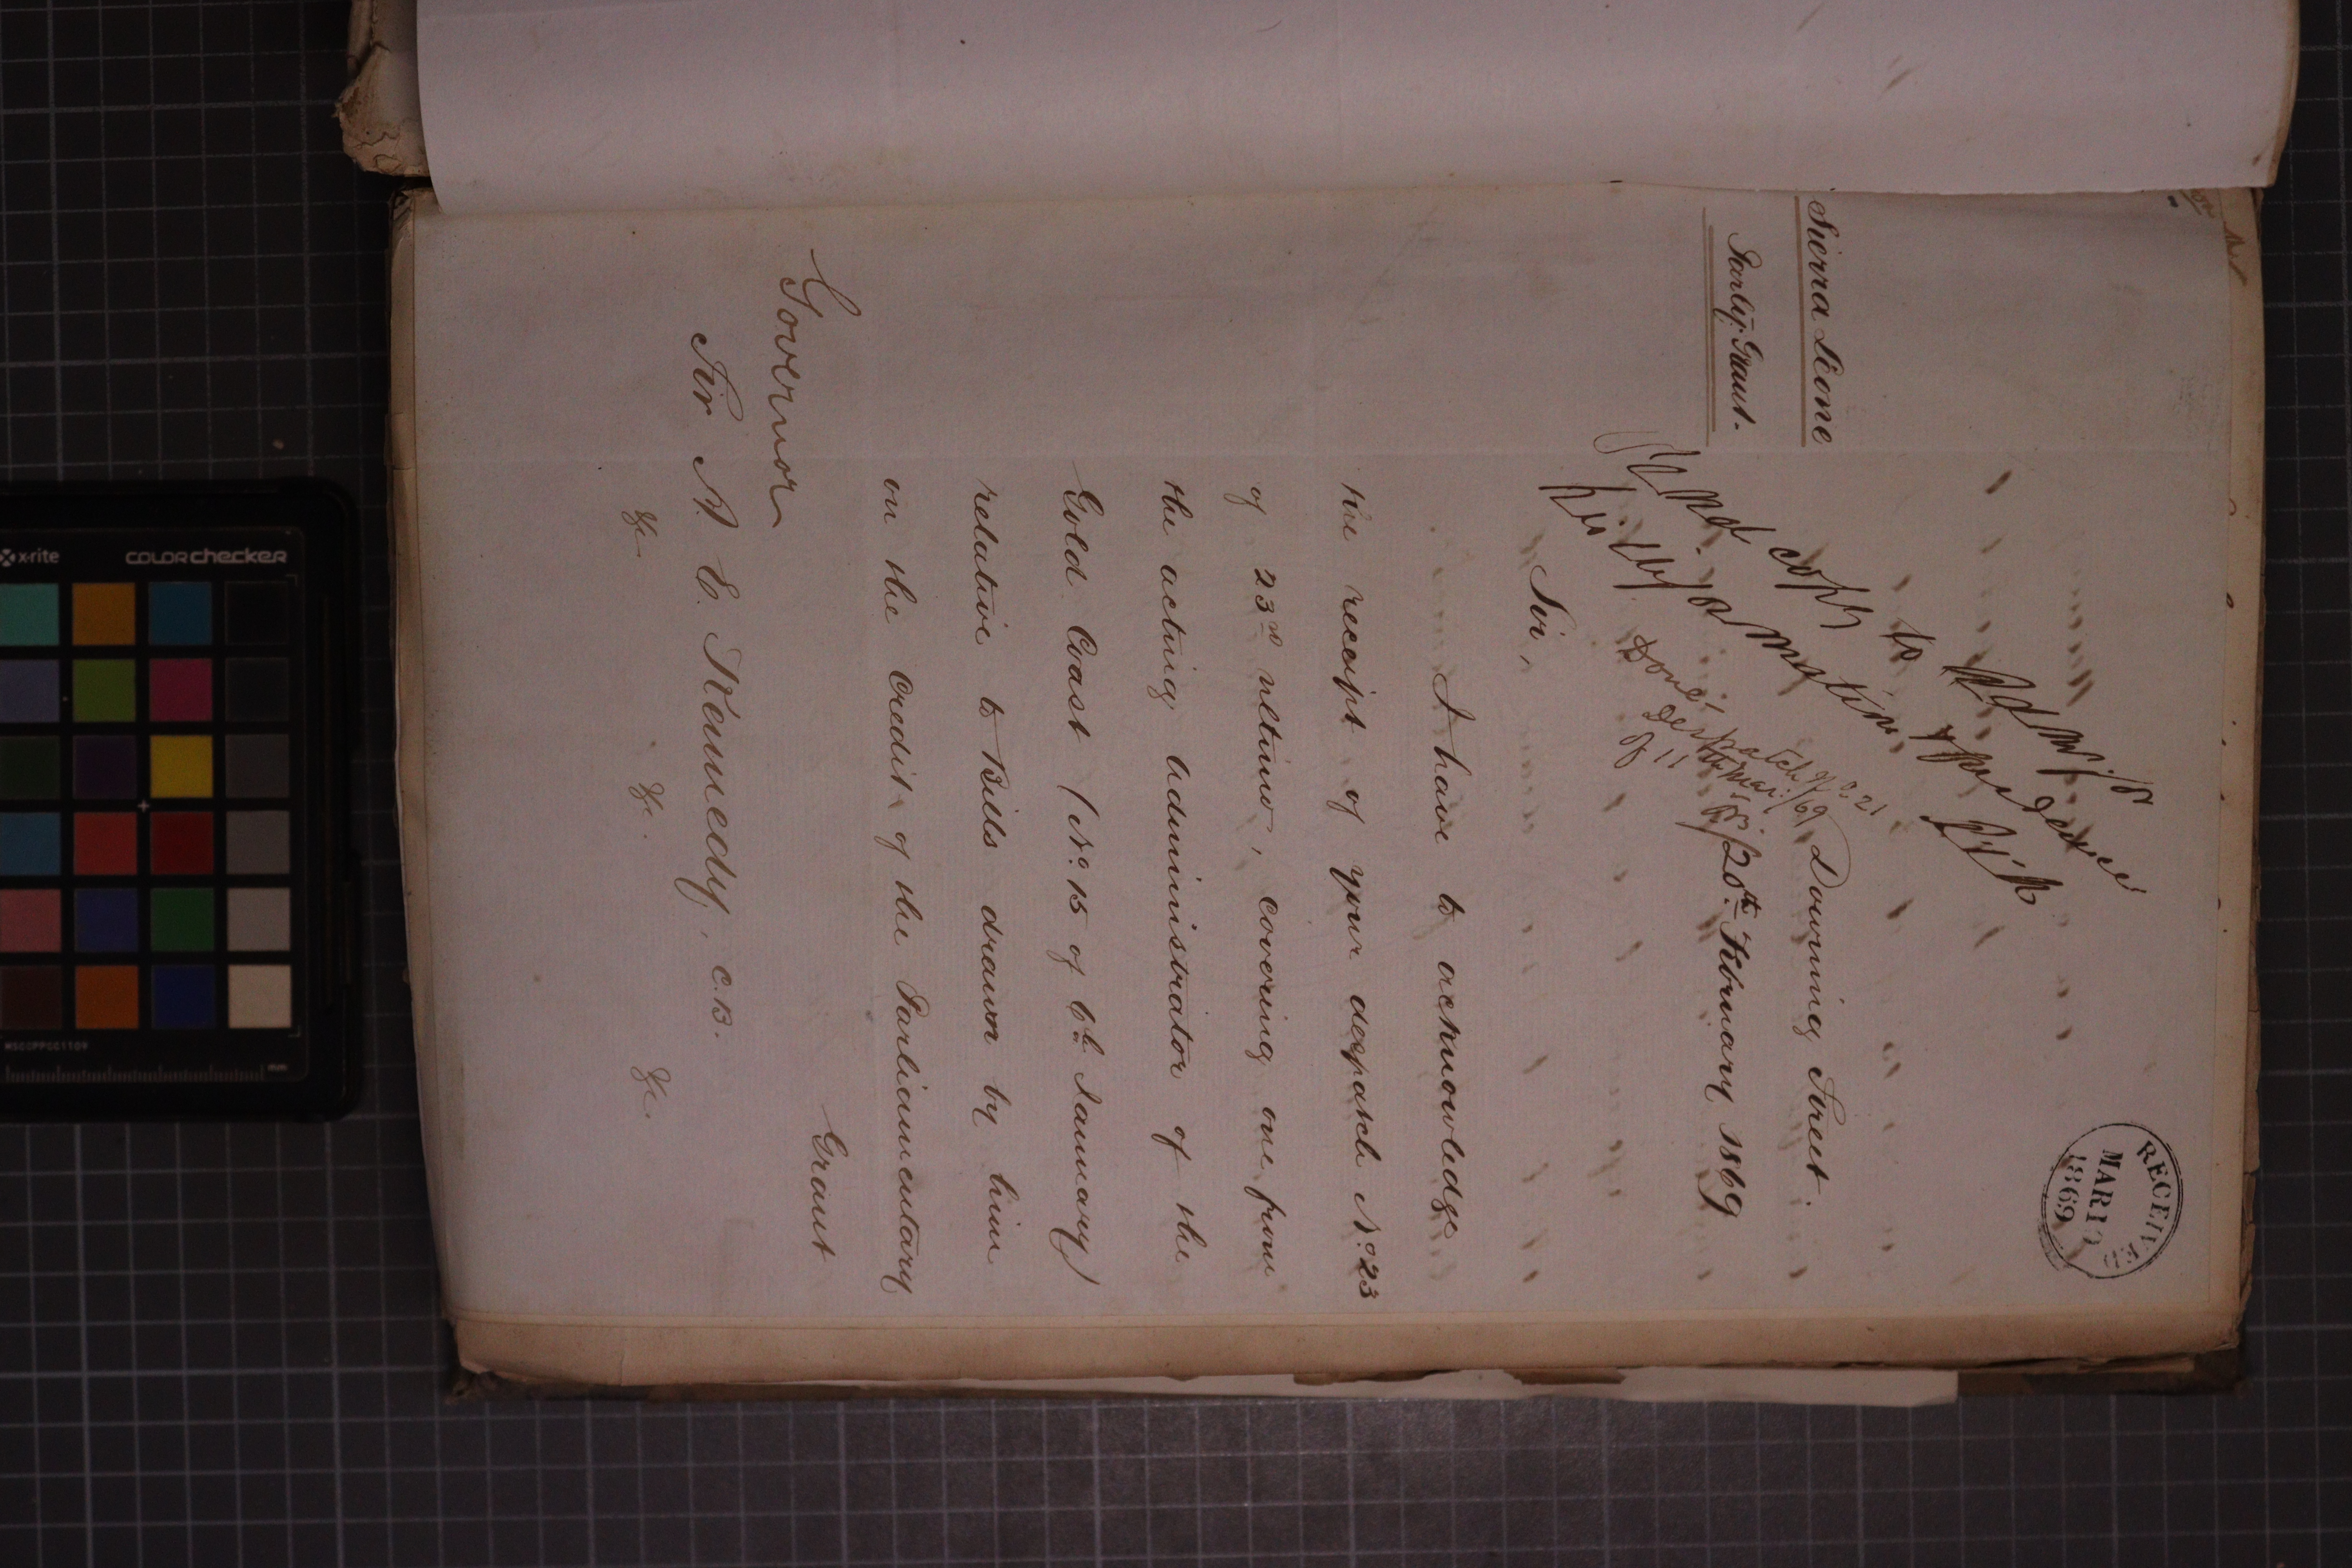 RECEIVED
MAR 10
1869
Send copy to Admr. for
his information & guidance
Done
Despatch No. 21
of 11th Mar:/69
Sierra Leone
Parly. Grant.
Downing Street.
20th February 1869
Sir,
I have to acknowledge
the receipt of your despatch No. 23
of 23rd ultimo, covering one from
the acting Administrator of the
Gold Coast (No. 15 of 6th January)
relative to Bills drawn by him
on the credit of the Parliamentary
Grant
Governor
Sir A. E. Kennedy, C.B.
&c &c. &c.
x-rite
COLORchecker
MSCCPPCC1109
mm